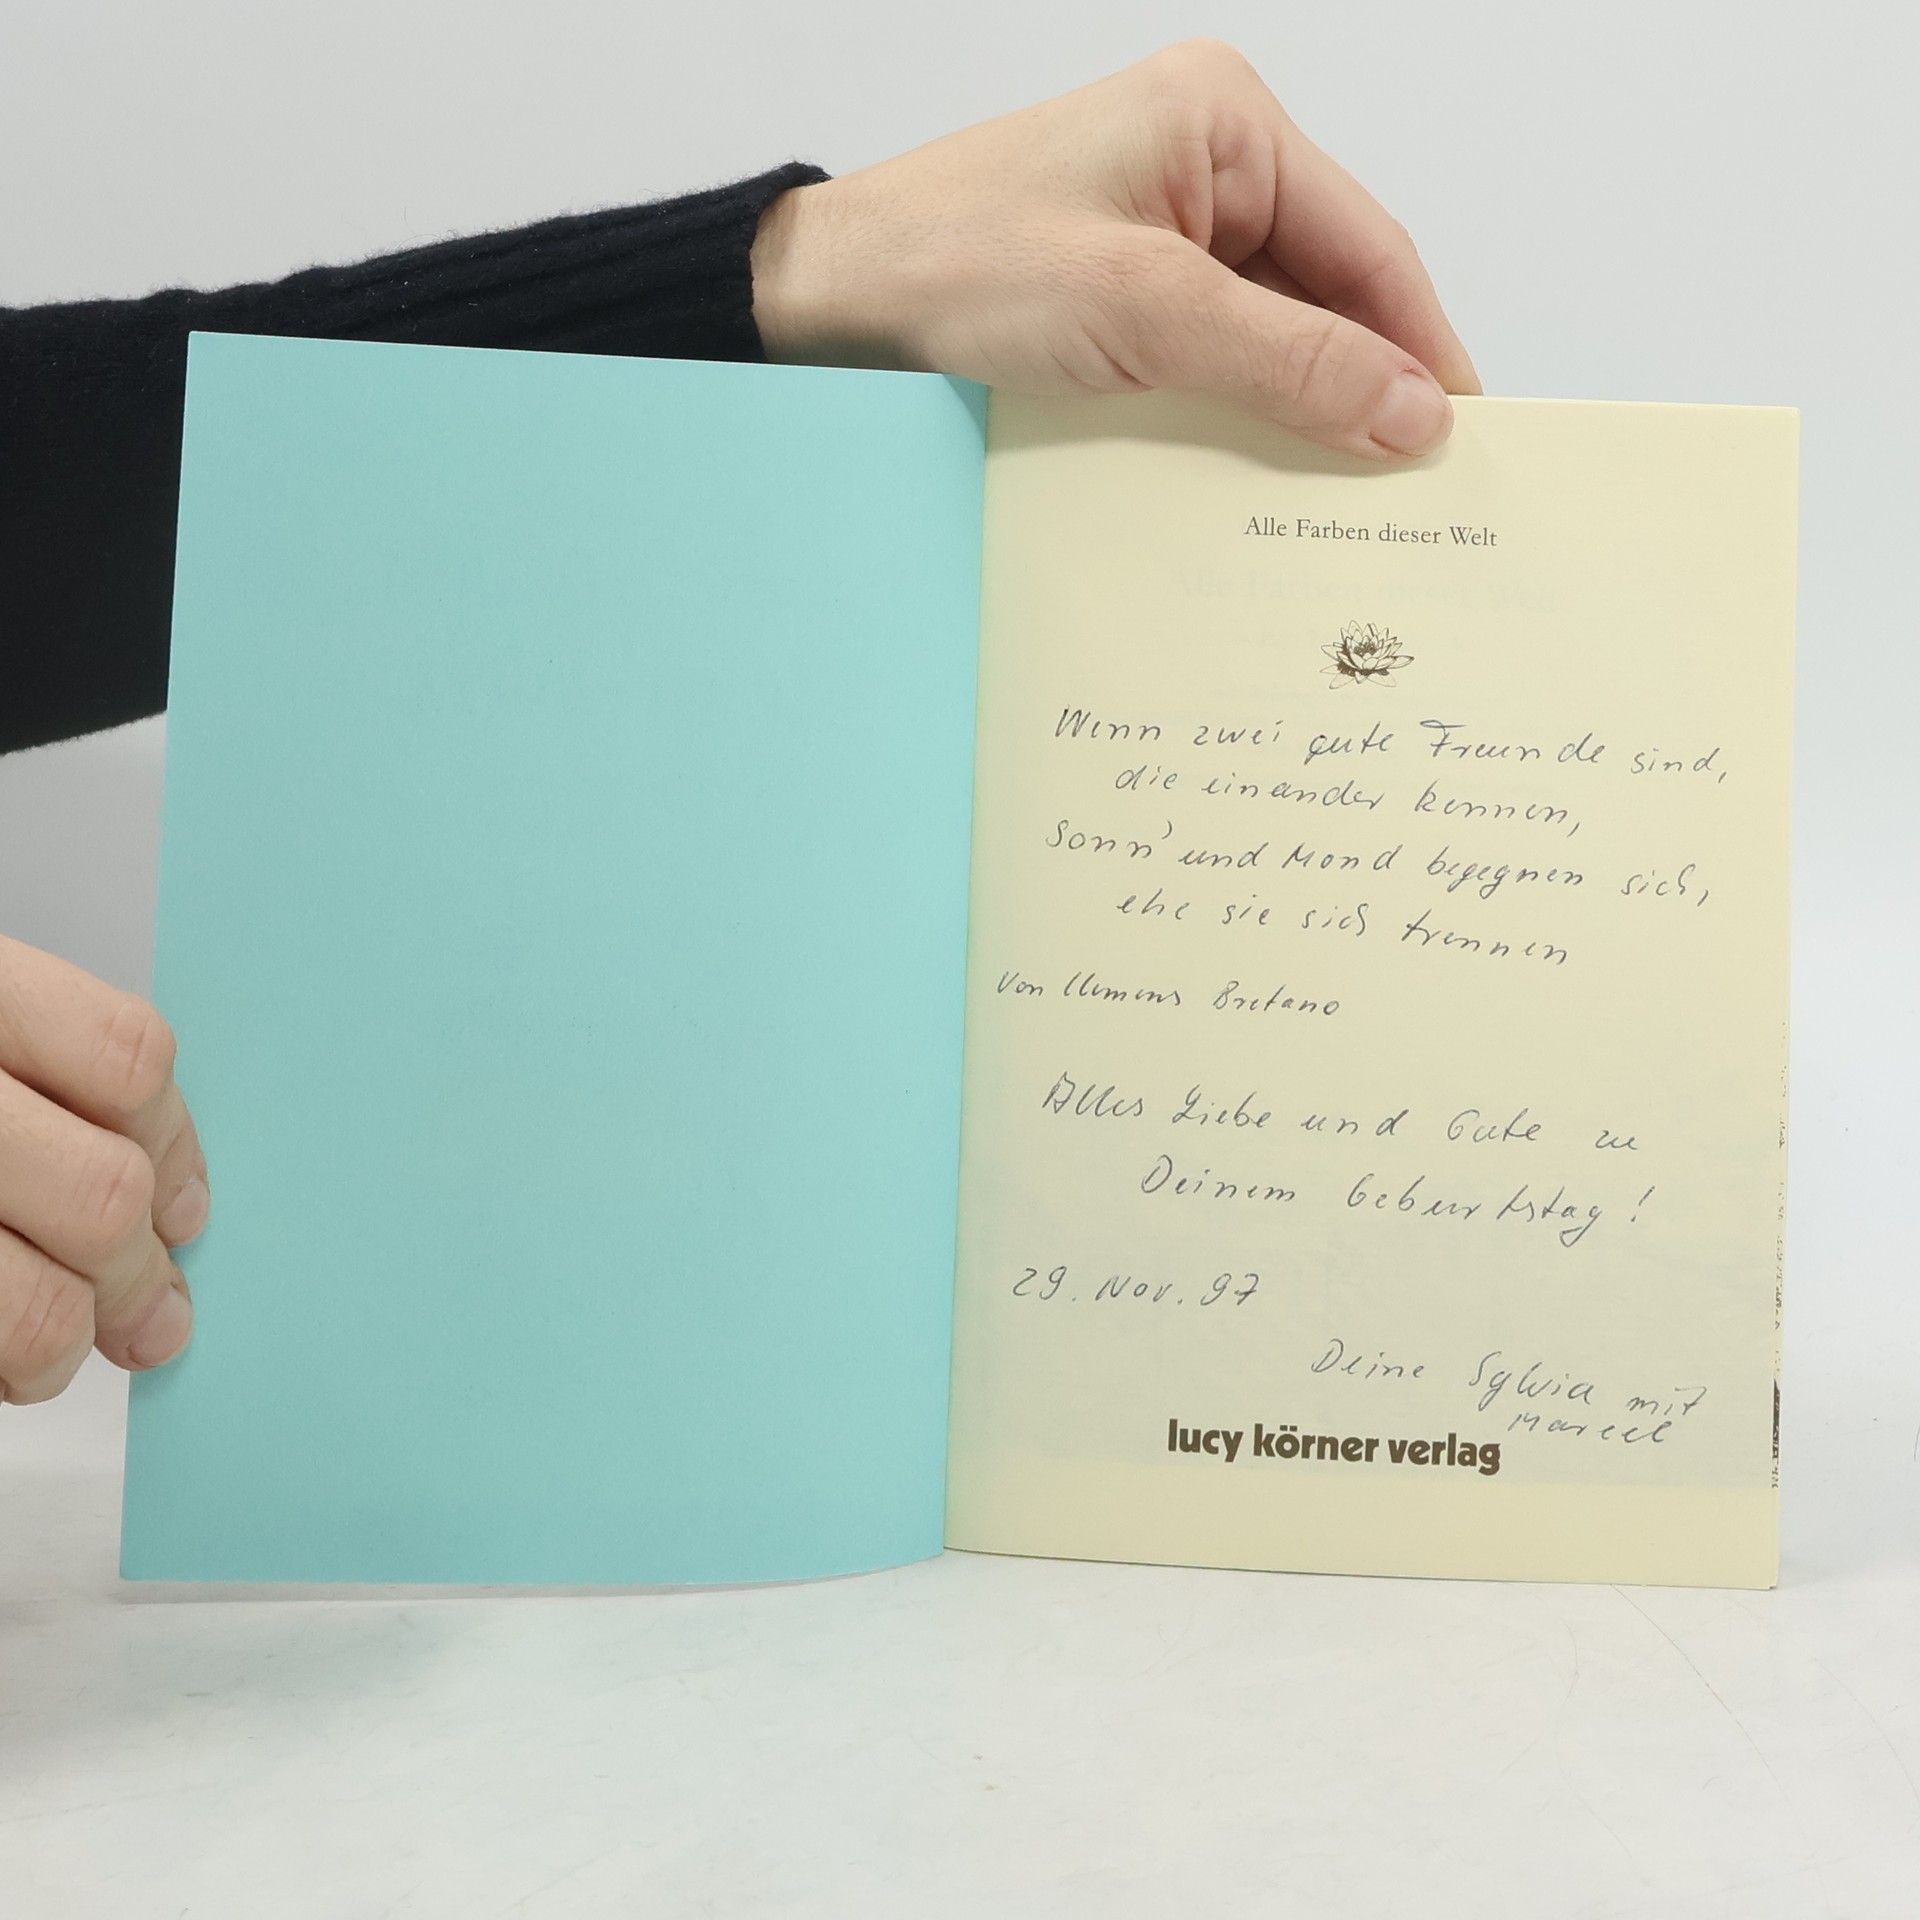 Alle Farben dieser Welt
Wenn zwei gute Freunde sind,
die einander kennen,
Sonn' und Mond begegnen sich,
ehe sie sich trennen
Von Clemens Bretano
Alles Liebe und Gute zu
Deinem Geburtstag!
29. Nov. 97
Deine Sylvia mit
Marcel
lucy körner verlag